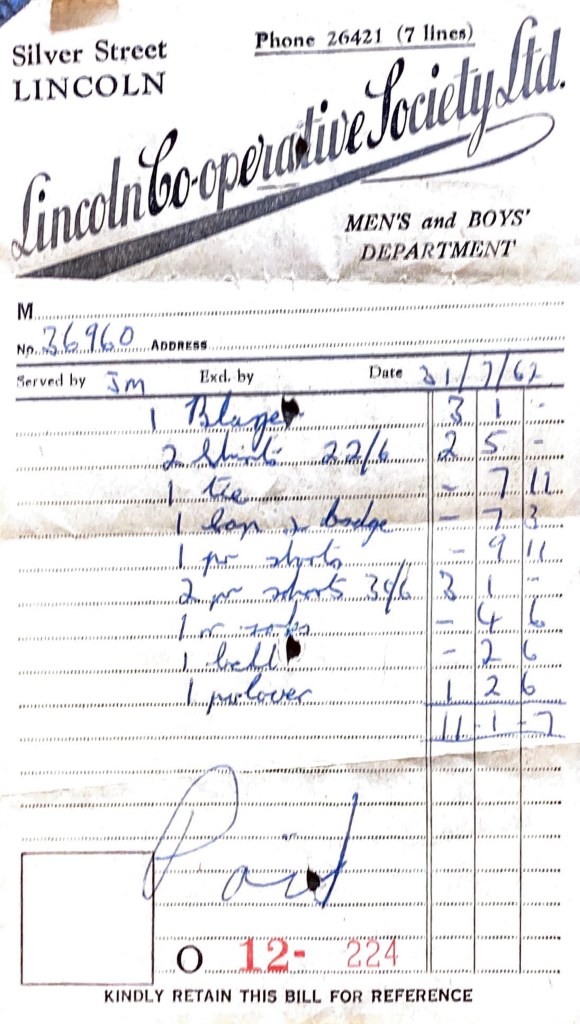 Silver Street
LINCOLN
Phone 26421 (7 lines)
Lincoln Co-operative Society Ltd.
MEN'S and BOYS'
DEPARTMENT
M
No. 36960 ADDRESS
Served by Jm Exd. by Date 31/7/62
1 Blazer 3 1 -
2 Shirts 22/6 2 5 -
1 tie - 7 11
1 Cap & Badge - 7 3
1 pr shorts - 9 11
2 pr shorts 30/6 3 1 -
1 pr socks - 4 6
1 belt - 2 6
1 pulover 1 2 6
11 - 1 - 7
Paid
O 12- 224
KINDLY RETAIN THIS BILL FOR REFERENCE